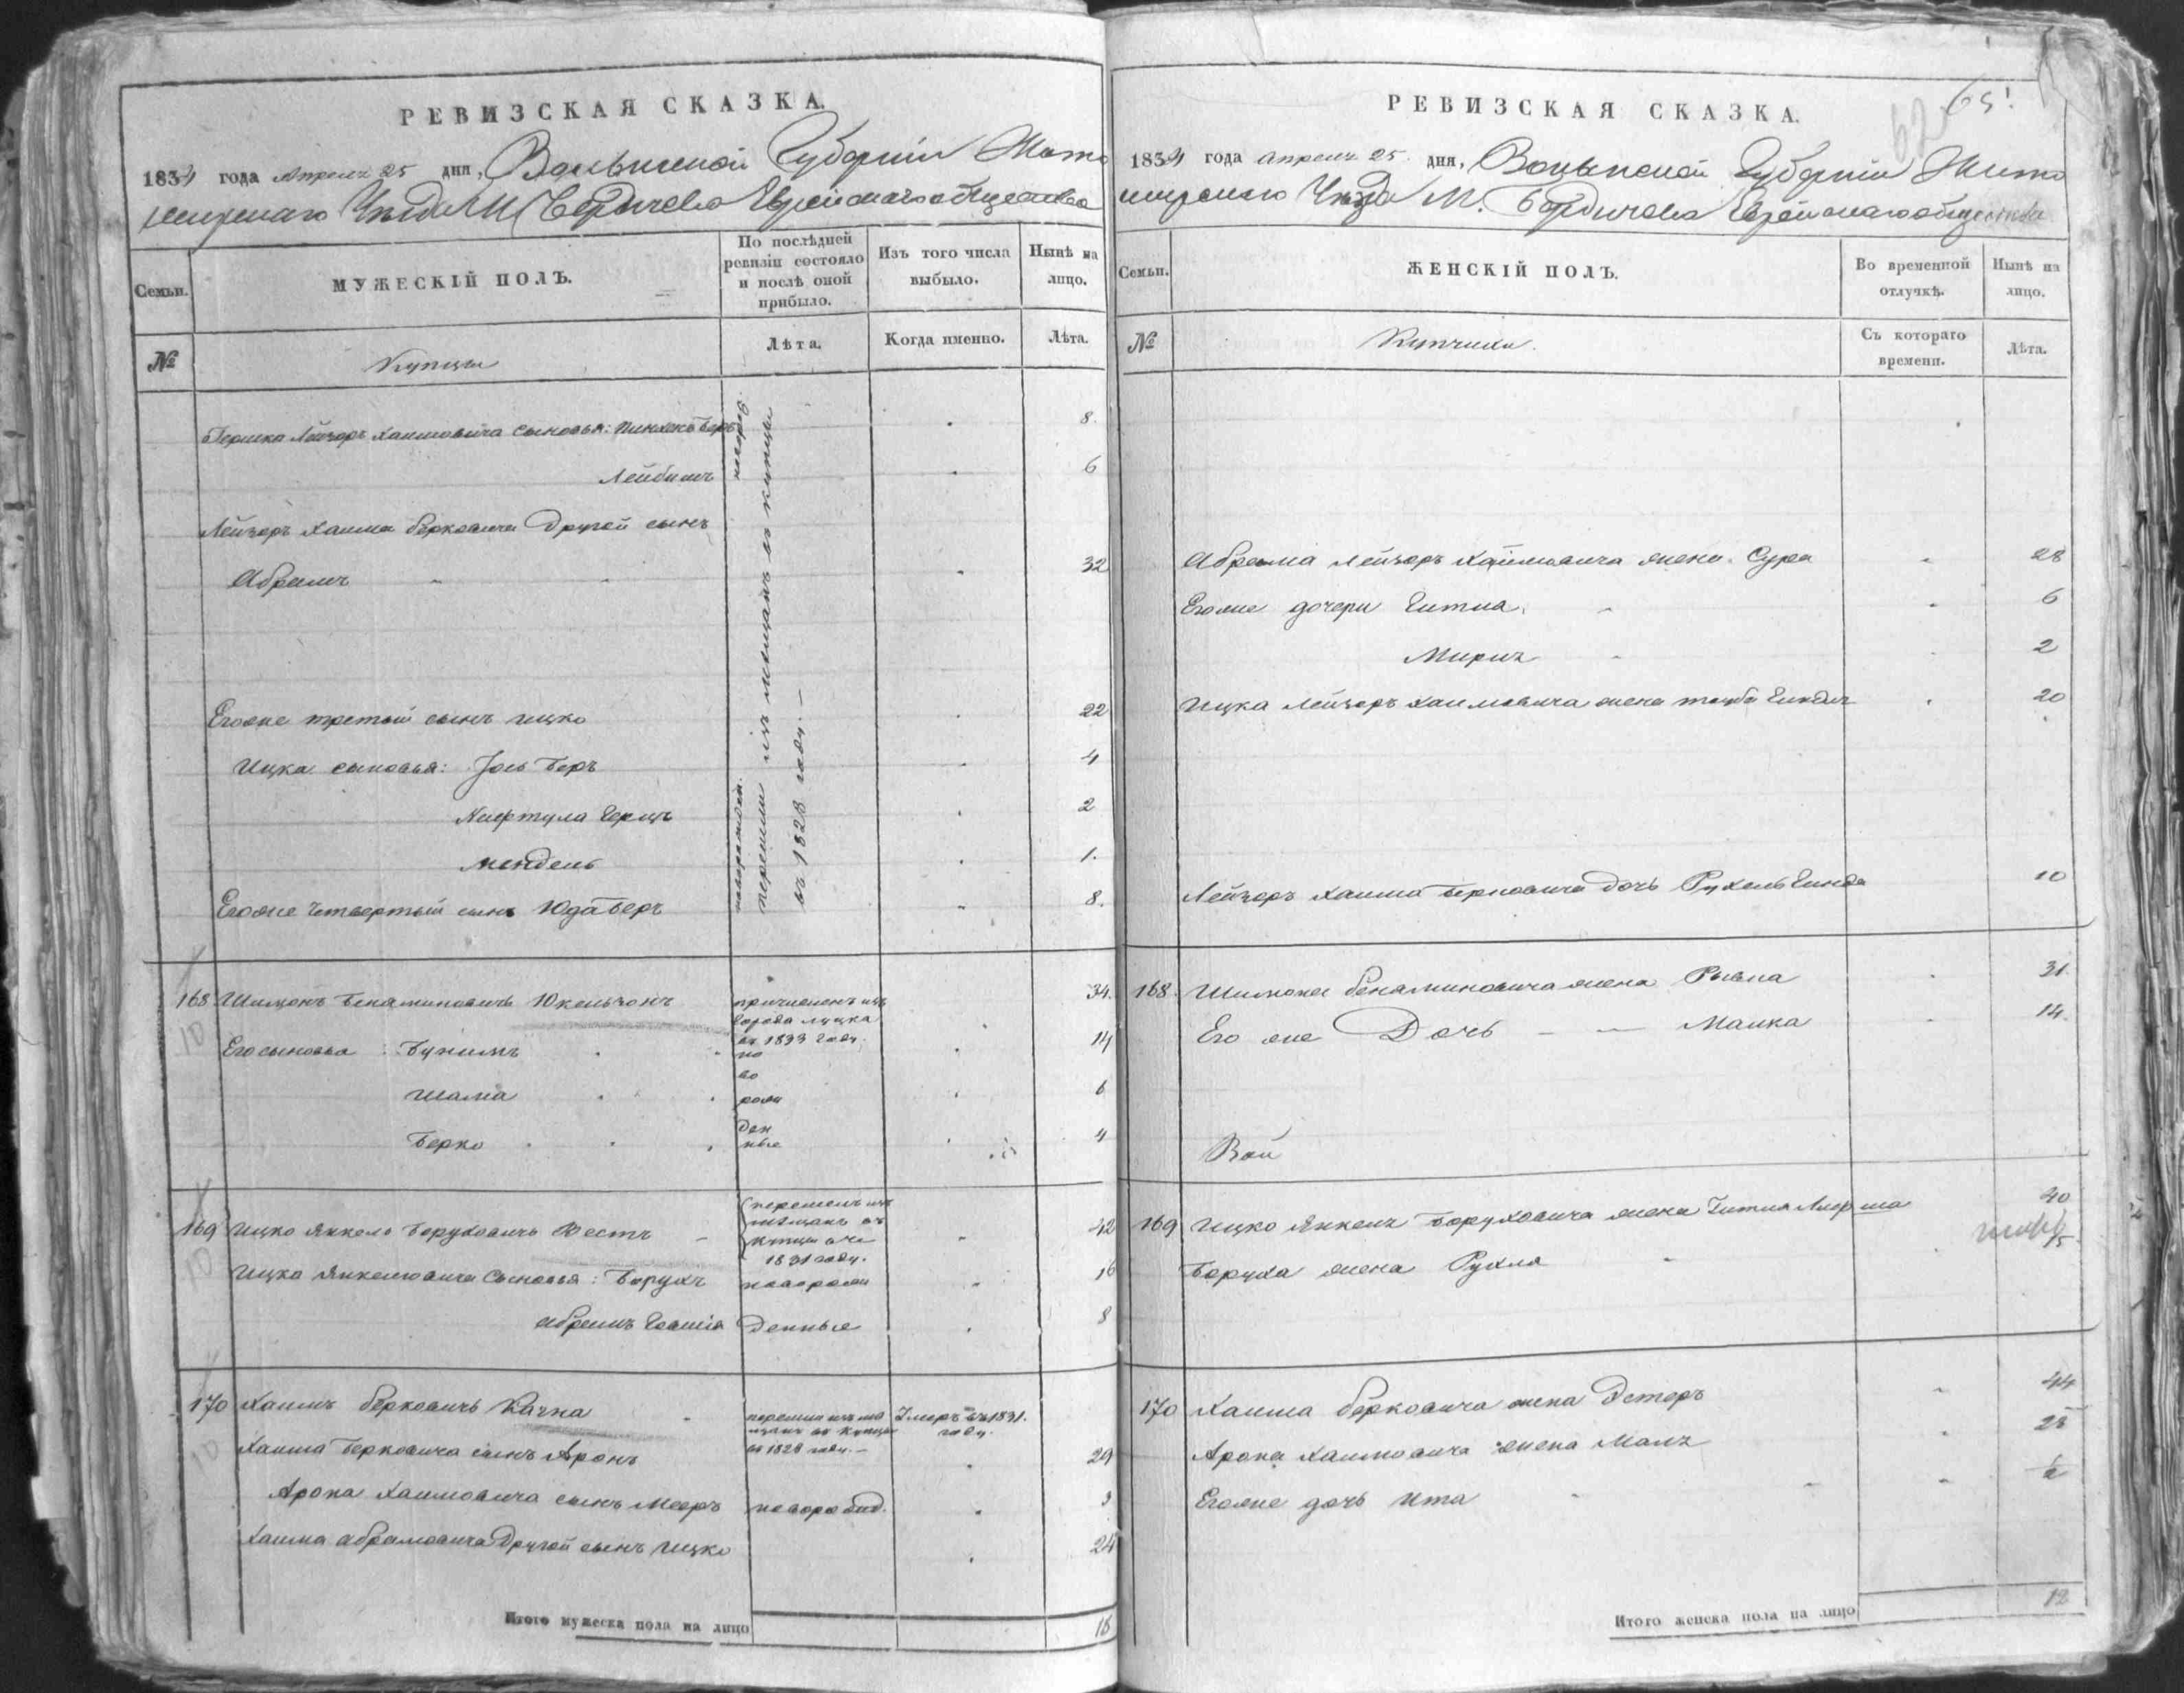 РЕВИЗСКАЯ СКАЗКА.
1834 года Апреля 25 дня, Волынской Губерніи Жито
мирскаго Уезда М. Бердичева Еврейскаго общества
Семьи.
МУЖЕСКІЙ ПОЛЪ.
По послѣдней ревизіи состояло и послѣ оной прибыло.
Изъ того числа выбыло.
Нынѣ на лицо.
№
Купцы
Лѣта.
Когда именно.
Лѣта.
Гершка Лейзоръ Хаимовича сыновья: Пинхосъ Беръ 8.
Лейбишъ 6
Лейзоръ Хаима Берковича Другой сынъ
Абрамъ 32
Егоже третый сынъ Ицко 22
Ицка сыновья: Іось Беръ 4
Нафтула Герцъ 2
Мендель 1.
Егоже Четвертый сынъ Юда Беръ 8.
перешли изъ мещанъ въ купцы
въ 1828 году.
168 Шимонъ Беняминовичъ Юкельзонъ причисленъ изъ 34.
города Луцка
въ 1833 году.
Его сыновья: Бунимъ но 14
во
Шама рож 6
ден
Берко ные 4
169 Ицко Янкель Беруховичъ Вестъ перешелъ изъ 42
мещанъ въ
купцы въ
1831 году.
Ицка Янкелювича Сыновья: Борухъ поворож 16
Абрамъ денные 8
170 Хаимъ Берковичъ Качка перешли изъ ме Умеръ въ 1831.
щанъ въ купцы году.
Хаима Берковича сынъ Аронъ въ 1828 году. 29
Арона Хаимовича сынъ Мееръ 3
Хаима Абрамовича Другой сынъ Ицко 24
Итого мужеска пола на лицо 18
РЕВИЗСКАЯ СКАЗКА.
65!
62
1834 года Апреля 25 дня, Волынской Губерніи Жито
мирскаго Уезда М. Бердичева Еврейскаго общества
Семьи.
ЖЕНСКІЙ ПОЛЪ.
Во временной отлучкѣ.
Нынѣ на лицо.
№
Купчихи.
Съ котораго времени.
Лѣта.
Абрама Лейзоръ Хаимовича жена Сура 28
Егоже дочери Гитла 6
Мирля 2
Ицка Лейзоръ Хаимовича жена 20
Лейзоръ Хаима Берковича дочь Рухель Гинда 10
168. Шимона Беняминовича жена Рывка 31.
Его же Дочь Малка 14.
169 Ицко Янкеля Боруховича жена Гитля 40
Боруха жена Рухля 15
170 Хаима Берковича жена Эстеръ 44
Арона Хаимовича жена Маля 28
Егоже дочь Ита
Итого женска пола на лицо 12